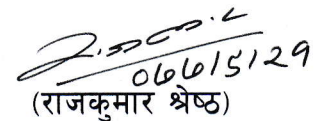 066/5/29
(राजकुमार श्रेष्ठ)